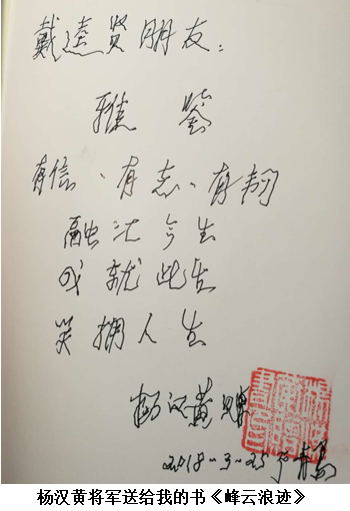 戴贤朋友：
雅鉴
有信、有志、有
融汇今生
成就此生
笑拥人生
杨汉黄赠
2018-3-25于青岛
杨汉黄将军送给我的书《峰云浪迹》